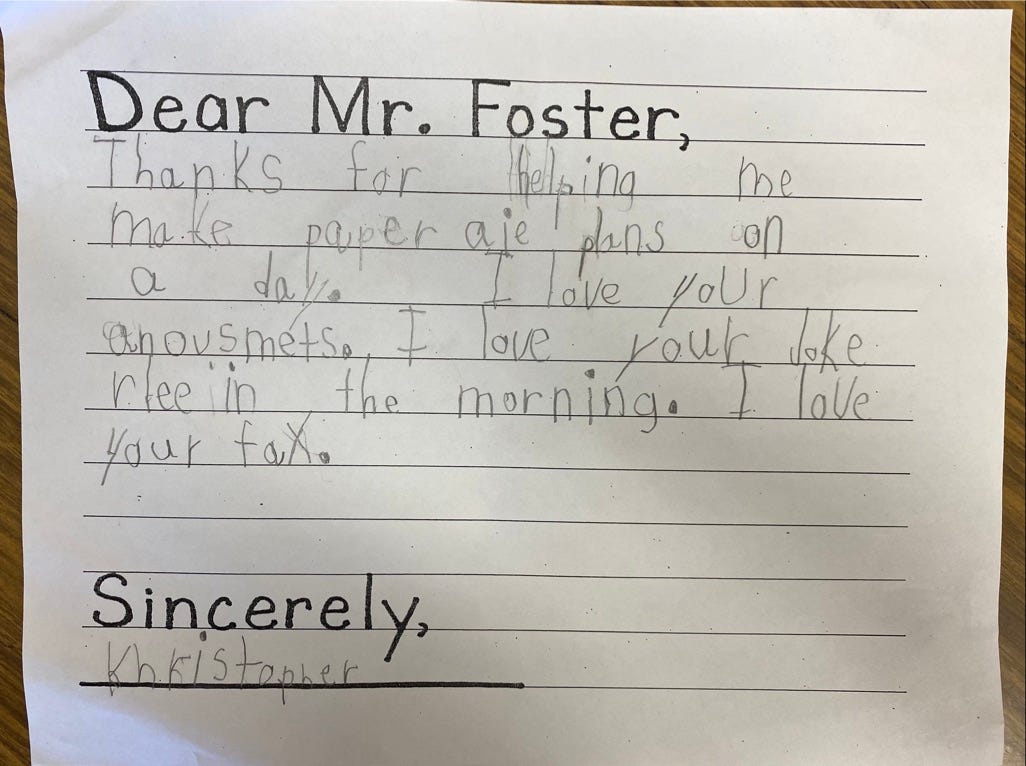 Dear Mr. Foster,
Thanks for helping me
make paper aje plans on
a day. I love your
anousmets. I love your Joke
rlee in the morning. I love
your fax.
Sincerely,
Khristopher